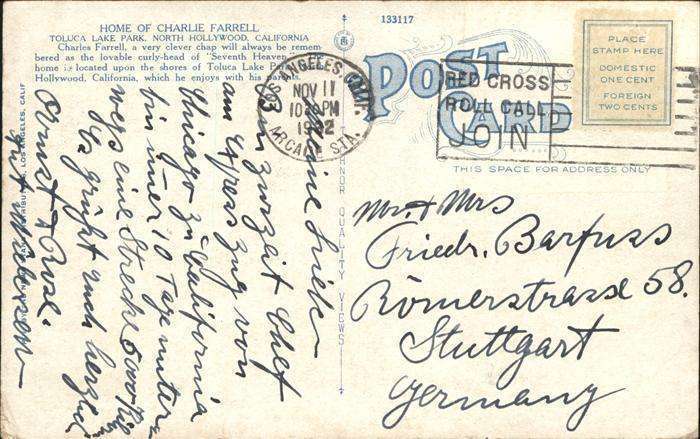 HOME OF CHARLIE FARRELL
TOLUCA LAKE PARK, NORTH HOLLYWOOD, CALIFORNIA
Charles Farrell, a very clever chap will always be remem
bered as the lovable curly-head of "Seventh Heaven,"
home is located upon the shores of Toluca Lake Park,
Hollywood, California, which he enjoys with his parents.
133117
POST CARD
THIS SPACE FOR ADDRESS ONLY
PLACE
STAMP HERE
DOMESTIC
ONE CENT
FOREIGN
TWO CENTS
LOS ANGELES, CALIF.
NOV 11
10 PM
ARCADE STA.
RED CROSS
ROLL CALL
JOIN
Meine Liebe
Bin zurzeit Chef
am Express zug von
Chicago zu California
bin immer 10 Tage unter
wegs eine Strecke 5000
Es grüßt euch herzlich
Ernst & Rosl.
auf Wiedersehn
QUALITY VIEWS
LOS ANGELES, CALIF
Mr. & Mrs
Friedr. Barfuss
Römerstrasse 58.
Stuttgart
Germany